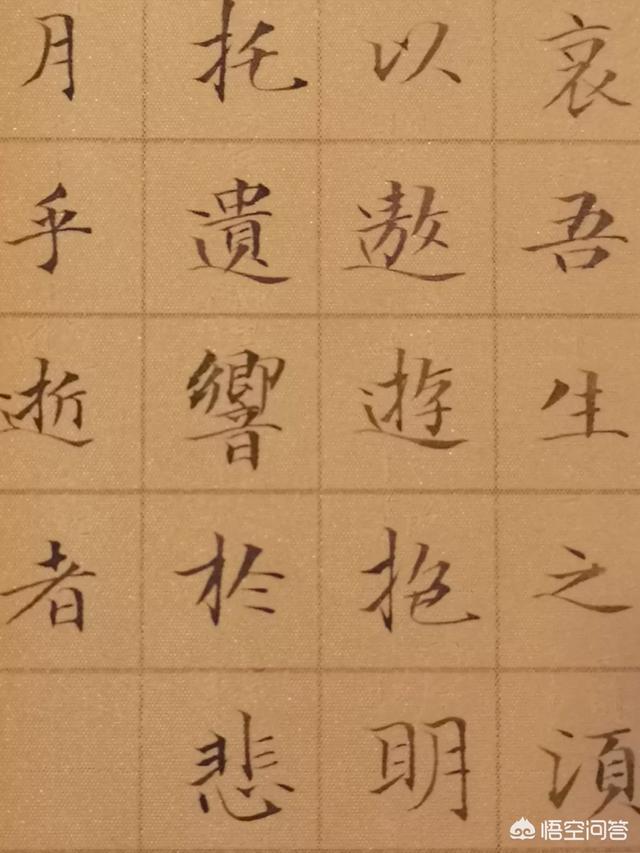 哀吾生之須
以遨遊抱明
托遺響於悲
月乎逝者
悟空问答